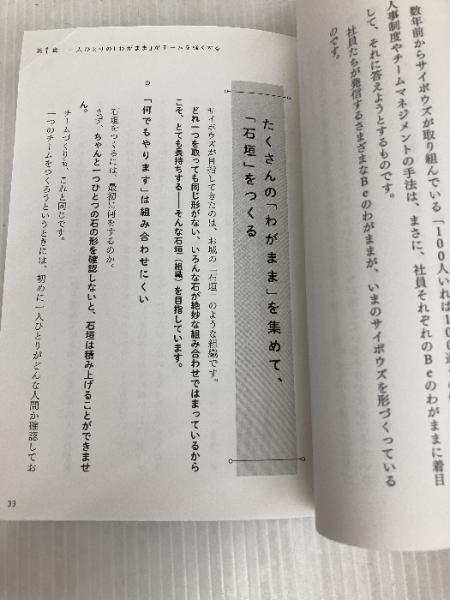 数年前からサイボウズが取り組んでいる「100人いれば100通
人事制度やチームマネジメントの手法は、まさに、社員それぞれのBeのわがままに着目
して、それに答えようとするものです。
社員たちが発信するさまざまなBeのわがままが、いまのサイボウズを形づくっている
のです。
たくさんの「わがまま」を集めて、
「石垣」をつくる
サイボウズが目指してきたのは、お城の「石垣」のような組織です。
どれ一つを取っても同じ形がない、いろんな石が絶妙な組み合わせではまっているから
こそ、とても長持ちする——そんな石垣(組織)を目指しています。
「何でもやります」は組み合わせにくい
石垣をつくるには、最初に何をするのか。
まず、ちゃんと一つひとつの石の形を確認しないと、石垣は積み上げることができませ
ん。
チームづくりも、これと同じです。
一つのチームをつくろうというときには、初めに一人ひとりがどんな人間か確認してお
第1章 一人ひとりの「わがまま」がチームを強くする
33